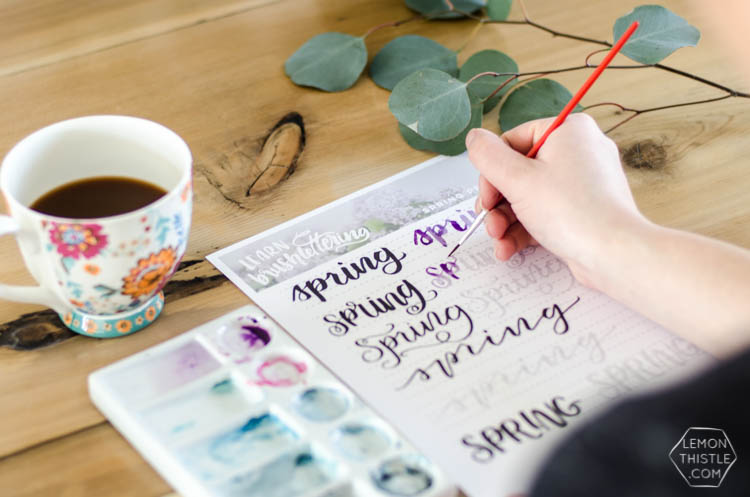 LEARN
brushlettering
SPRING
spring spring
spring sp spring
spring spring
spring
spring
SPRING SPRING
LEMON
THISTLE
.COM